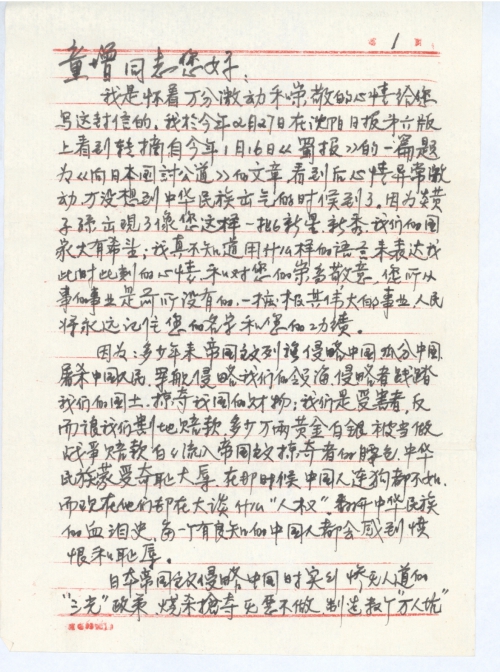 1
童增同志您好：
我是怀着万分激动和崇敬的心情给您
写这封信的，我於今年2月27日在沈阳日报第六版
上看到转摘自今年1月16日《蜀报》的一篇题
为《向日本国讨公道》的文章，看到后心情异常激
动，万没想到中华民族出气的时候到了，因为炎黄
子孙出现了像您这样一批新星、新秀，我们的国
家大有希望；我真不知道用什么样的语言来表达我
此时此刻的心情，和对您的崇高敬意，您所从
事的事业是前所没有的，一桩极其伟大的事业，人民
将永远记住您的名字和您的功绩。
因为：多少年来帝国主义列强侵略中国，瓜分中国，
屠杀中国人民，军舰侵略我们的领海，侵略者践踏
我们的国土，掠夺我国的财物；我们是受害者，反
而让我们割地赔款，多少万两黄金白银被当做
战争赔款白白流入帝国主义掠夺者的腰包，中华
民族蒙受奇耻大辱，在那时候中国人连狗都不如，
而现在他们却在大谈什么"人权"，翻开中华民族
的血泪史，每一个有良知的中国人都会感到愤
恨和耻辱。
日本帝国主义侵略中国时实行惨无人道的
"三光"政策，烧杀抢夺无恶不做，制造数个"万人坑"